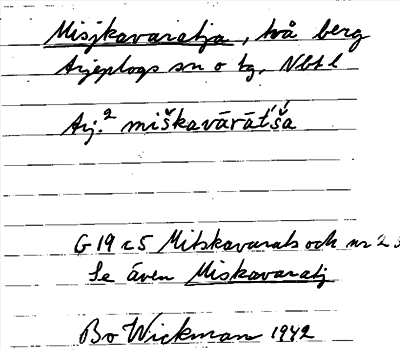 Misjkavaratja, två berg
Arjeplogs sn o tg, Nbt l
Arj.² miškavārāt́š́a
G 19 c 5 Mitskavarats och nr 2
Se även Miskavaratj
Bo Wickman 1942